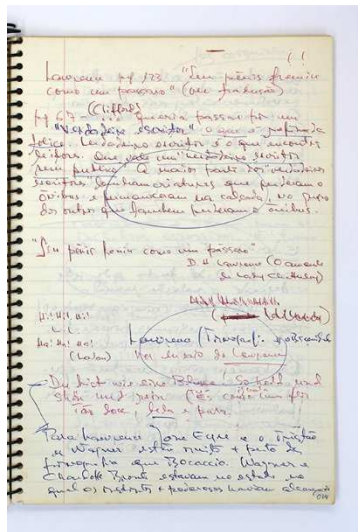 Lawrence pg 123 "Seu pênis fremia
como um pássaro" (
(Clifford)
pg 67 - ... queria passar por um
"Verdadeiro escritor" O que é
tolice. Verdadeiro escritor é o que encontra
leitores. Que vale um verdadeiro escritor
sem público? A maior parte dos verdadeiros
escritores lembram criaturas que perderam o
ônibus e permaneceram na calçada, no meio
dos outros que também perderam o ônibus.
"Seu pênis fremia como um pássaro"
D. H. Lawrence (O amante
de Lady Chatterley)
Hi! Hi! Hi!
Ha! Ha! Ha!
Lawrence
Du bist wie eine Blume / So hold und
schön und rein (És como uma flor
tão doce, bela e pura.
Para Lawrence Jane Eyre e o Tristão
de Wagner estão muito + perto da
pornografia que Bocaccio. Wagner e
Charlotte Brontë estavam no estado no
qual os instintos + poderosos haviam